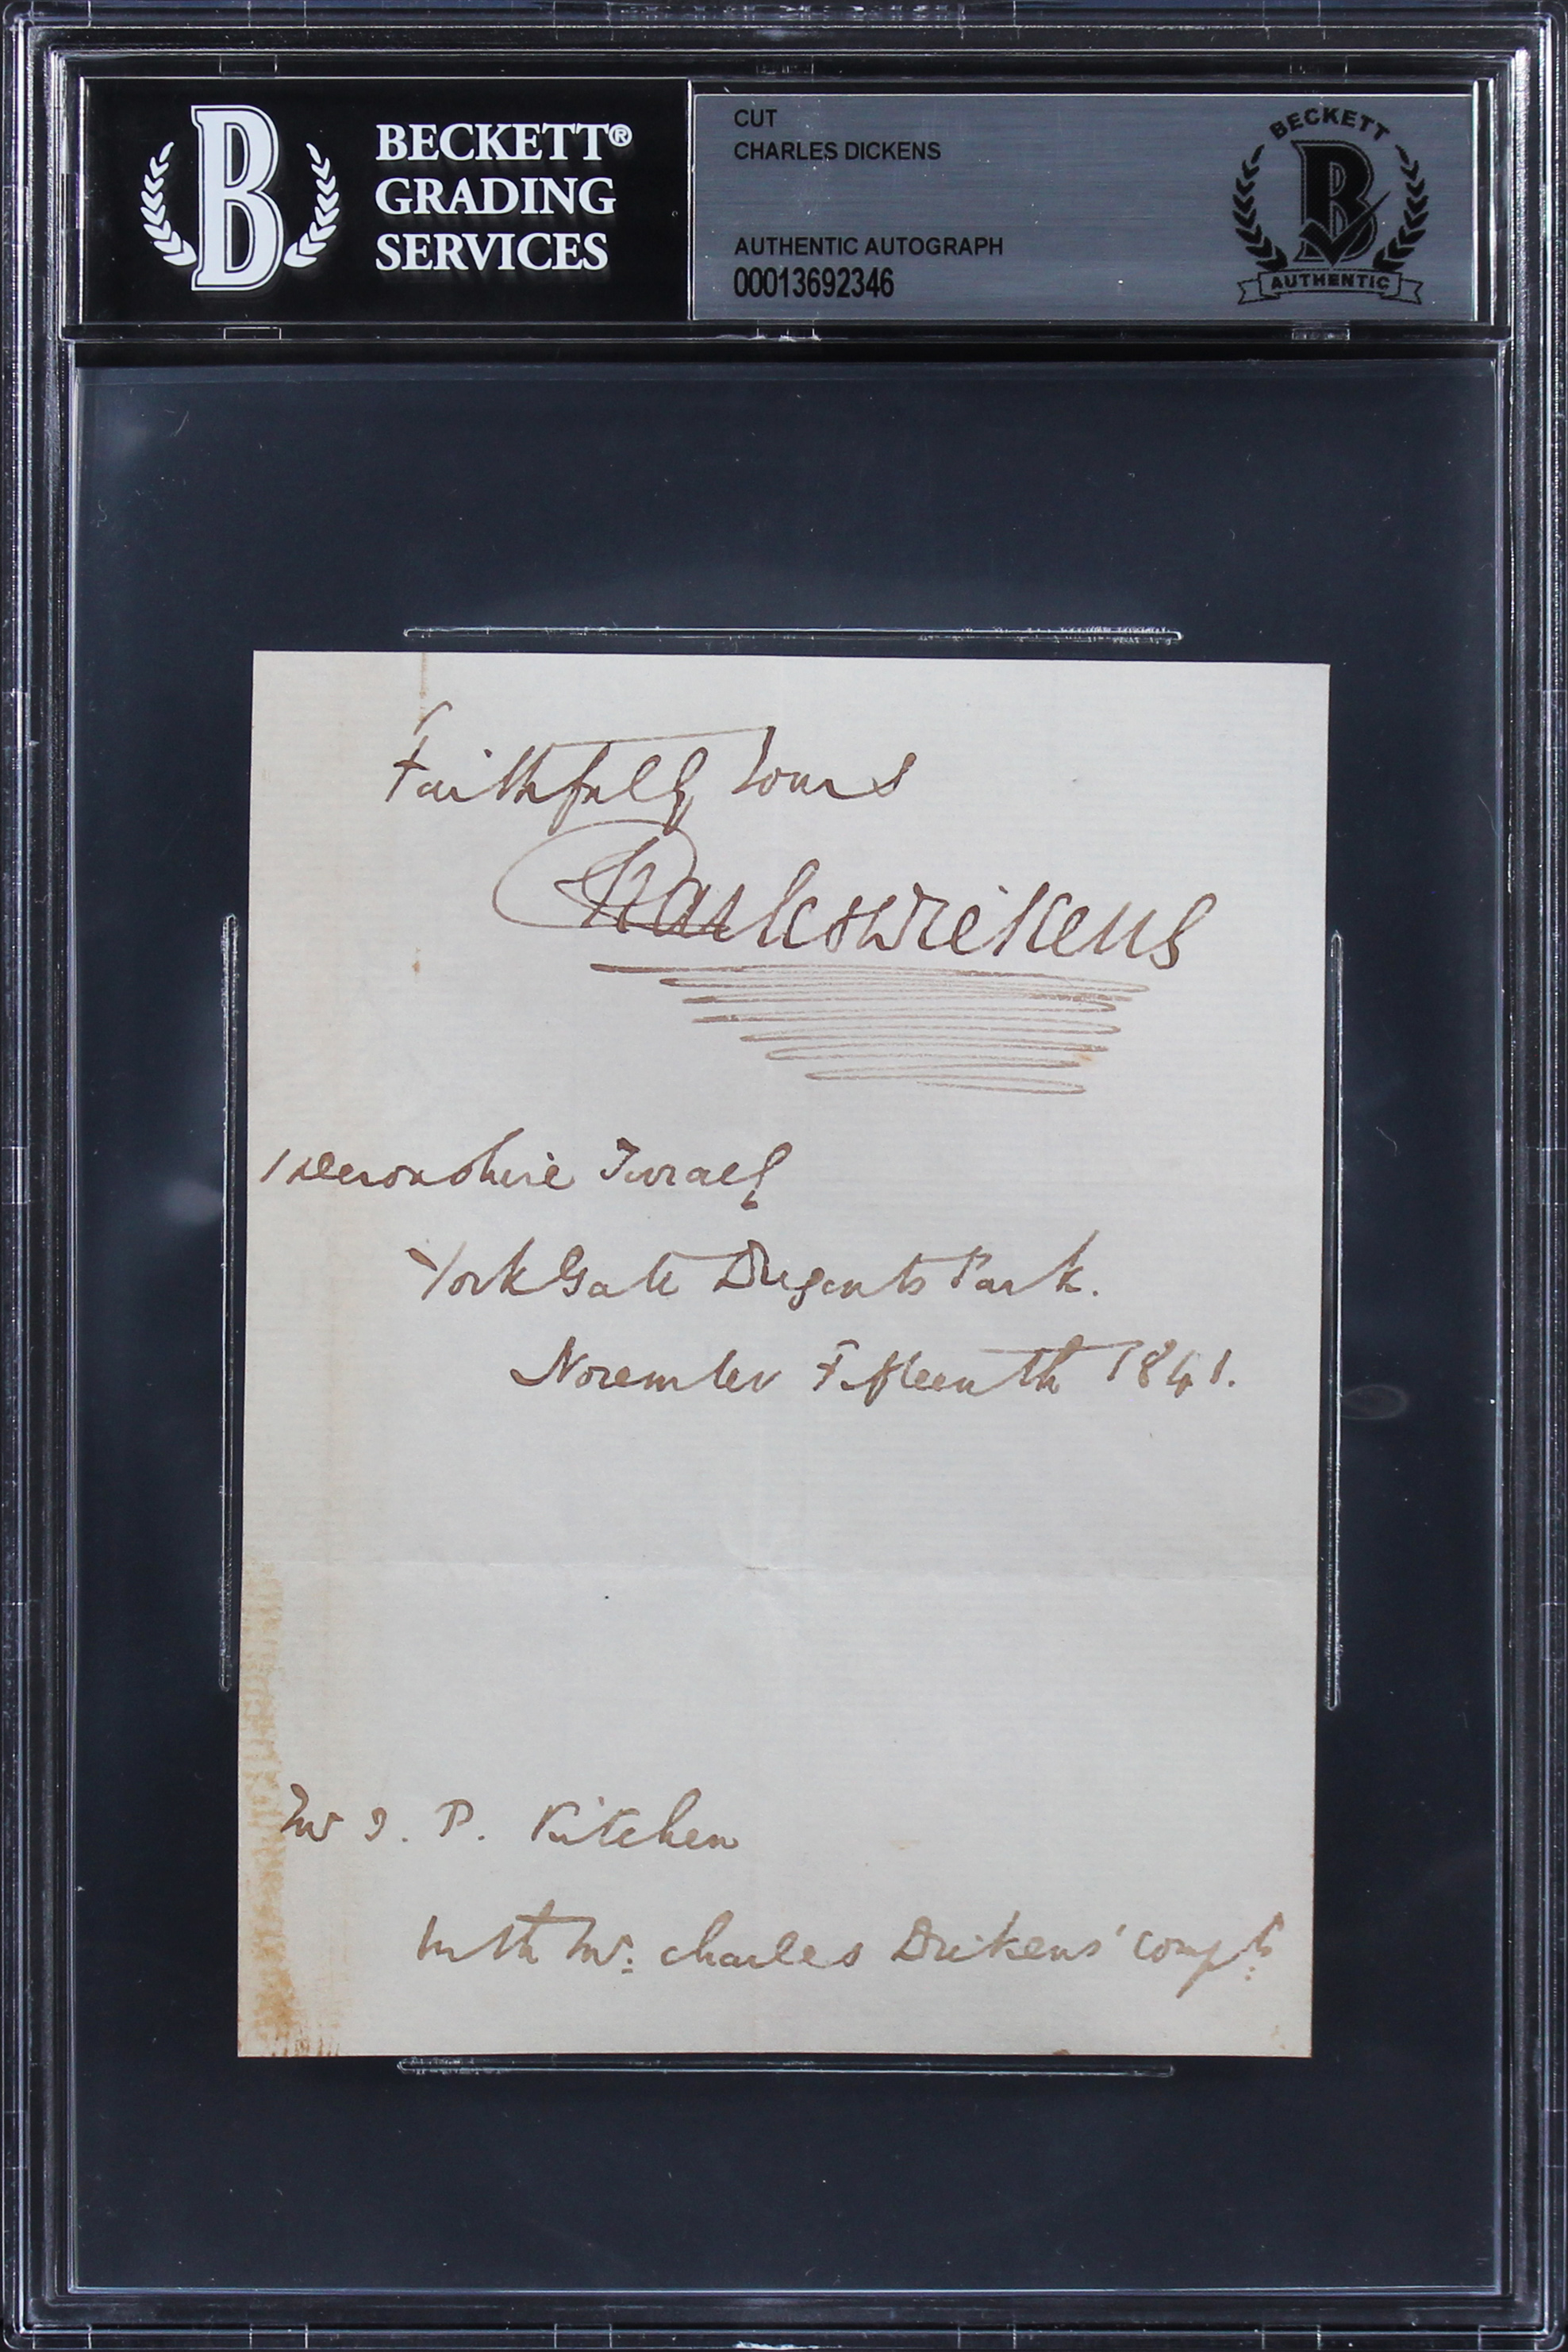 BECKETT®
GRADING
SERVICES
B
CUT
CHARLES DICKENS
AUTHENTIC AUTOGRAPH
00013692346
BECKETT
B
AUTHENTIC
Faithfully Yours
Charles Dickens
1 Devonshire Terrace
York Gate Regents Park.
November Fifteenth 1841.
Mr J. P. Kitchen
With Mr: Charles Dickens' compts